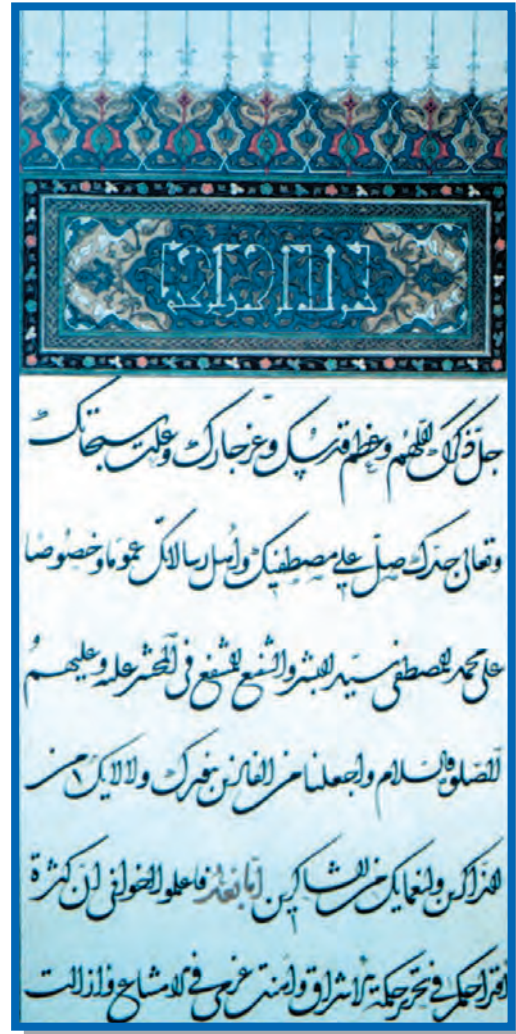 جل ذكرك اللهم وعظم قدسك وعز جارك وعلت سبحاتك
وتعالى جدك صل على مصطفيك وأهل رسالاتك عموما وخصوصا
على محمد المصطفى سيد البشر والشفيع المشفع في المحشر عليه وعليهم
الصلوة والسلام واجعلنا من الفائزين بنورك ولالائك من
الذاكرين ولنعمايك من الشاكرين أما بعد فاعلموا إخواني أن كثرة
اقتراحكم في تحرير حكمة الاشراق وأوهنت عزمي في الامتناع وأزالت